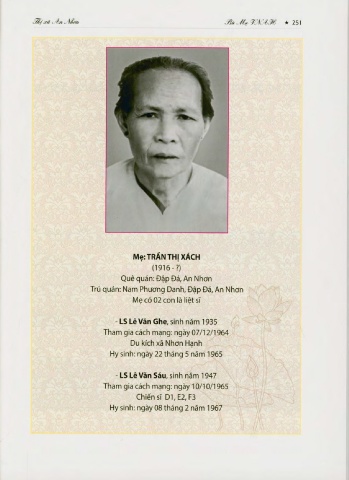 Thị xã An Nhơn
Bà Mẹ VNAH ★ 251
Mẹ: TRẦN THỊ XÁCH
(1916 - ?)
Quê quán: Đập Đá, An Nhơn
Trú quán: Nam Phương Danh, Đập Đá, An Nhơn
Mẹ có 02 con là liệt sĩ
- LS Lê Văn Ghe, sinh năm 1935
Tham gia cách mạng: ngày 07/12/1964
Du kích xã Nhơn Hạnh
Hy sinh: ngày 22 tháng 5 năm 1965
- LS Lê Văn Sáu, sinh năm 1947
Tham gia cách mạng: ngày 10/10/1965
Chiến sĩ D1, E2, F3
Hy sinh: ngày 08 tháng 2 năm 1967